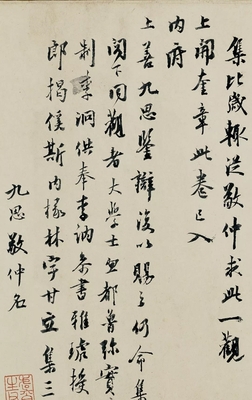 集比歲輒從敬仲求此一觀
上開奎章此卷已入
內府
上善九思鑒辯復以賜之仍命集
閣下同觀者大學士忽都魯弥實
制李泂供奉李訥參書雅琥授
郎揭傒斯內掾林宇甘立 集三
九思敬仲名